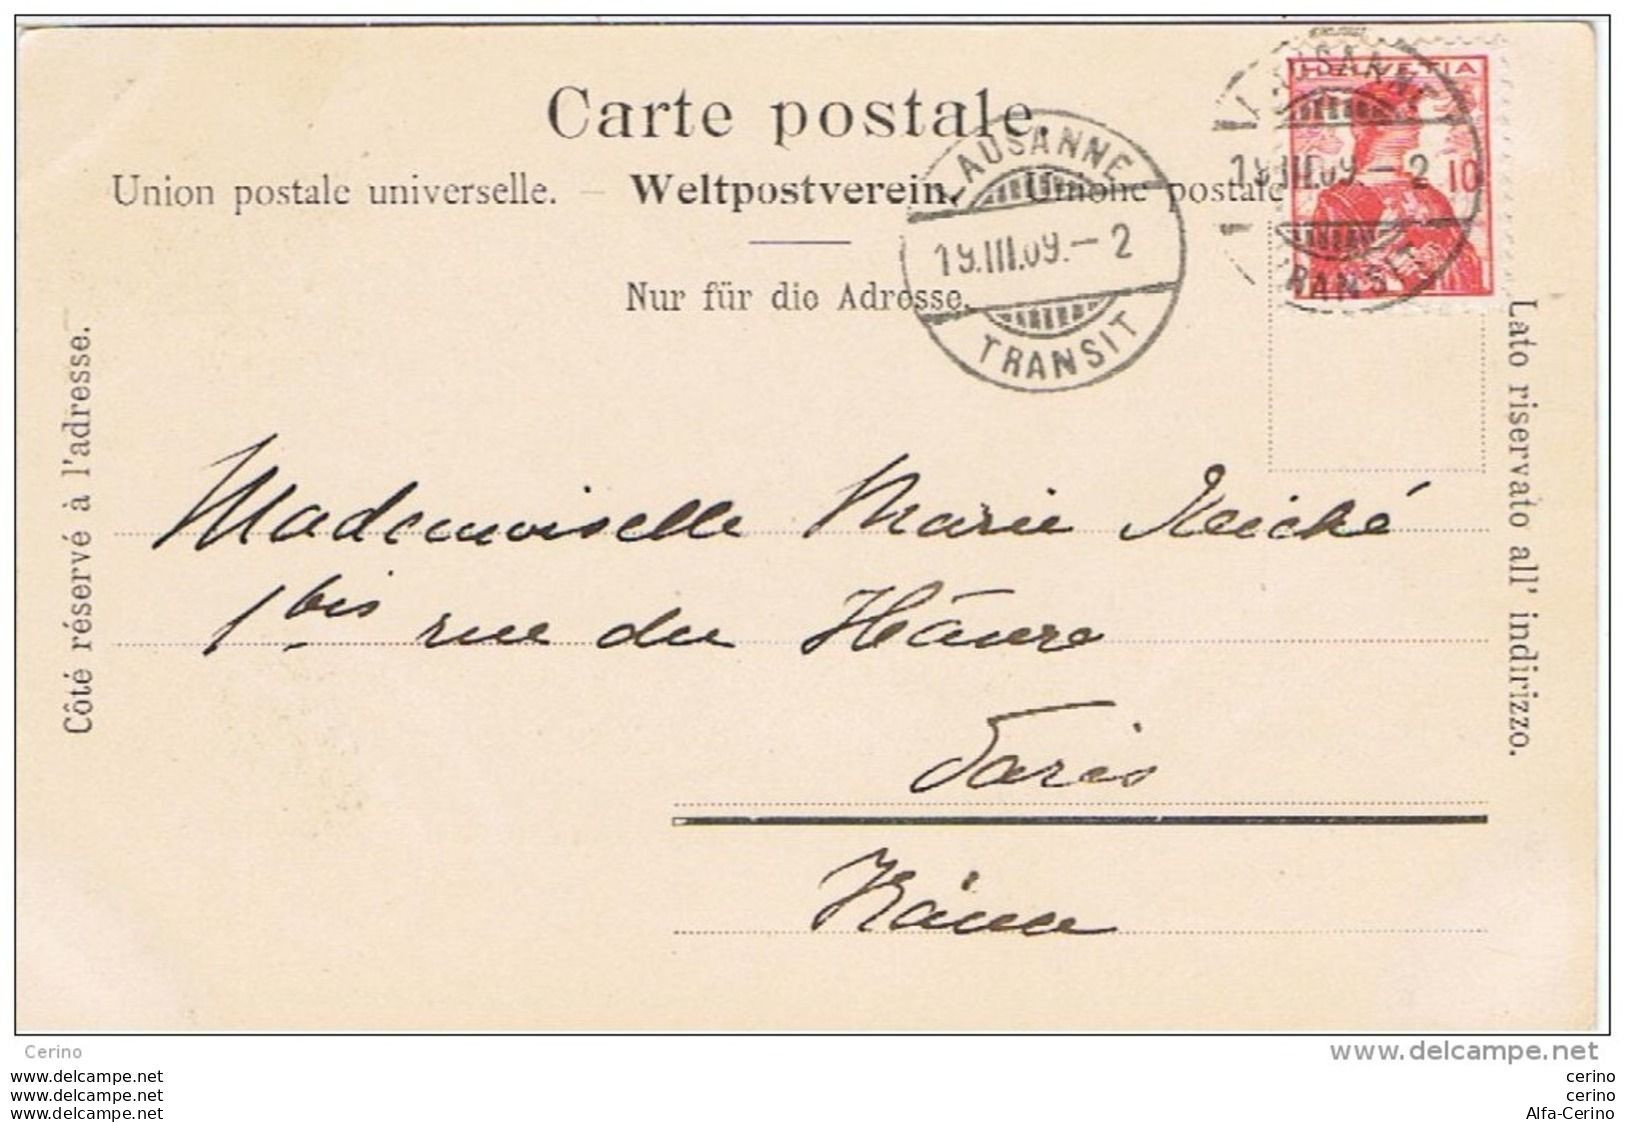 Carte postale.
Union postale universelle. – Weltpostverein. – Unione postale
Nur für die Adresse.
LAUSANNE
19.III.09.–2
TRANSIT
HELVETIA
10
LAUSANNE
19.III.09–2
TRANSIT
Côté réservé à l'adresse.
Lato riservato all' indirizzo.
Mademoiselle Marie Reiché
1 bis rue du Hâvre
Paris
France
Cerino
www.delcampe.net
www.delcampe.net
www.delcampe.net
www.delcampe.net
cerino
cerino
Alfa-Cerino